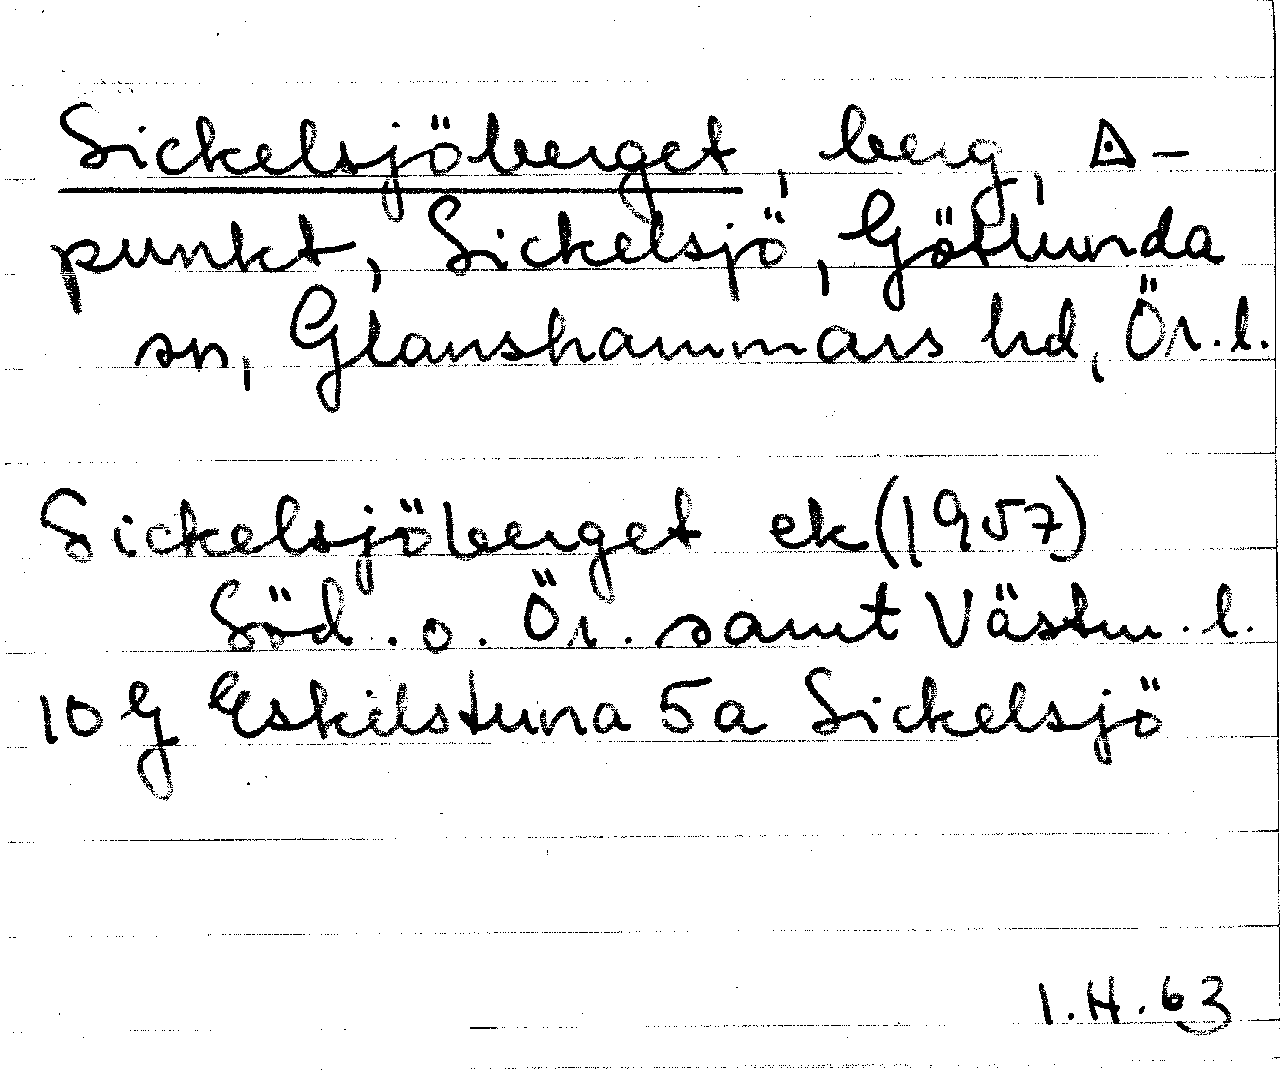 Sickelsjöberget, berg, ⟁-
punkt, Sickelsjö, Götlunda
sn, Glanshammars hd, Ör. l.
Sickelsjöberget ek (1957)
Söd. o. Ör. samt Västm. l.
10 G Eskilstuna 5a Sickelsjö
I.H. 63